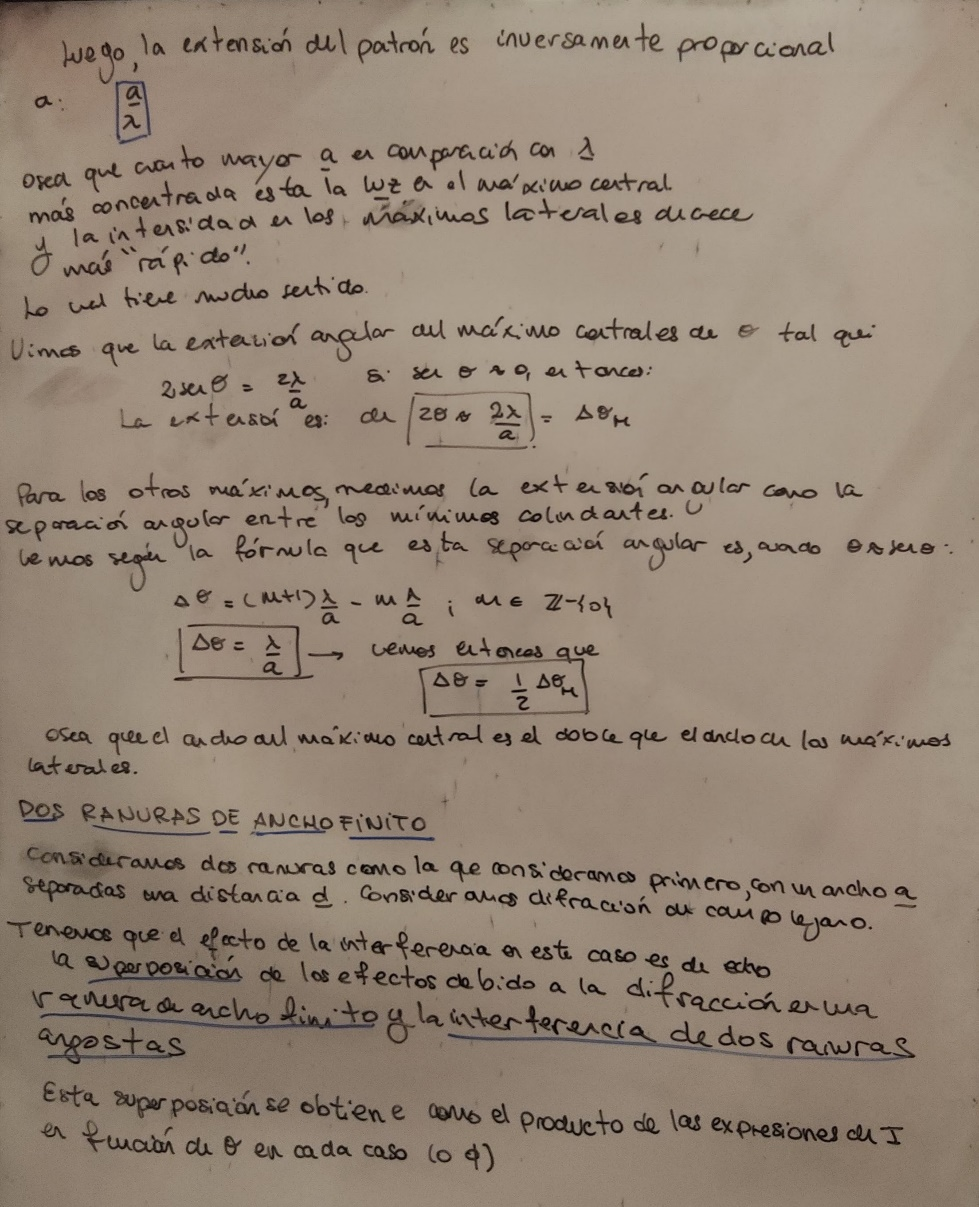 Luego, la extensión del patrón es inversamente proporcional
a: a/λ
Osea que cuanto mayor a en comparación con λ
más concentrada esta la luz en el máximo central
y la intensidad en los máximos laterales decrece
más "rápido".
Lo cual tiene mucho sentido.
Vimos que la extensión angular del máximo centrales de θ tal que:
2senθ = 2λ/a Si sen θ ≈ θ, entonces:
La extensión es: de 2θ ≈ 2λ/a = Δθ_M
Para los otros máximos, medimos la extensión angular como la
separación angular entre los mínimos colindantes.
Vemos según la fórmula que esta separación angular es, cuando θ≈senθ:
Δθ = (m+1) λ/a - m λ/a ; m ∈ Z-{0}
Δθ = λ/a → vemos entonces que
Δθ = 1/2 Δθ_M
osea que el ancho del máximo central es el doble que el ancho de los máximos
laterales.
DOS RANURAS DE ANCHO FINITO
Consideramos dos ranuras como la qe consideramos primero, con un ancho a
separadas una distancia d. Consideramos difracción de campo lejano.
Tenemos que el efecto de la interferencia en este caso es de echo
la superposición de los efectos debido a la difracción en una
ranura de ancho finito y la interferencia de dos ranuras
angostas
Esta superposición se obtiene como el producto de las expresiones de I
en función de θ en cada caso (o ϕ)